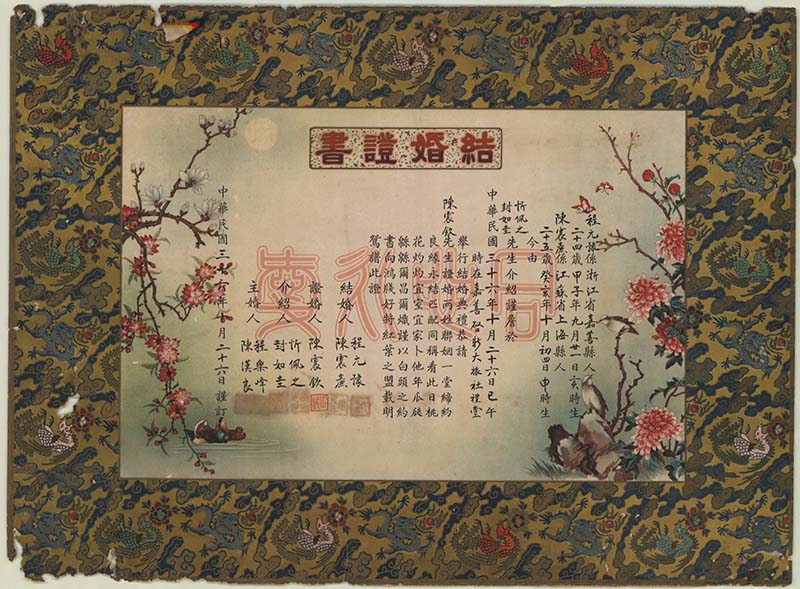 結婚證書
程元係浙江省嘉善縣人年
二十四歲甲子年九月廿一日亥時生
陳震係江蘇省上海縣人年
二十五歲癸亥年十月初四日申時生
今由
忻佩之
封如圭先生介紹謹詹於
中華民國三十六年十月二十六日巳午
時在嘉善啟新大旅社禮堂
舉行結婚典禮恭請
陳震欽先生證婚兩姓聯姻一堂締約
良緣永結匹配同稱看此日桃
花灼灼宜室宜家卜他年瓜瓞
緜緜爾昌爾熾謹以白頭之約
書向鴻牋好將紅葉之盟載明
鴛譜此證
結婚人 程元
陳震
證婚人 陳震欽
介紹人 忻佩之
封如圭
主婚人 程樂峰
陳漢良
中華民國三十六年十月二十六日謹訂